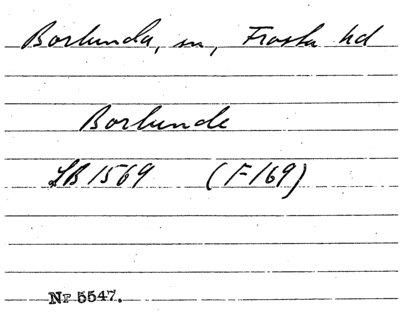 Borlunda, sn, Frosta hd
Borlunde
LB 1569 (F 169)
Nr 5547.